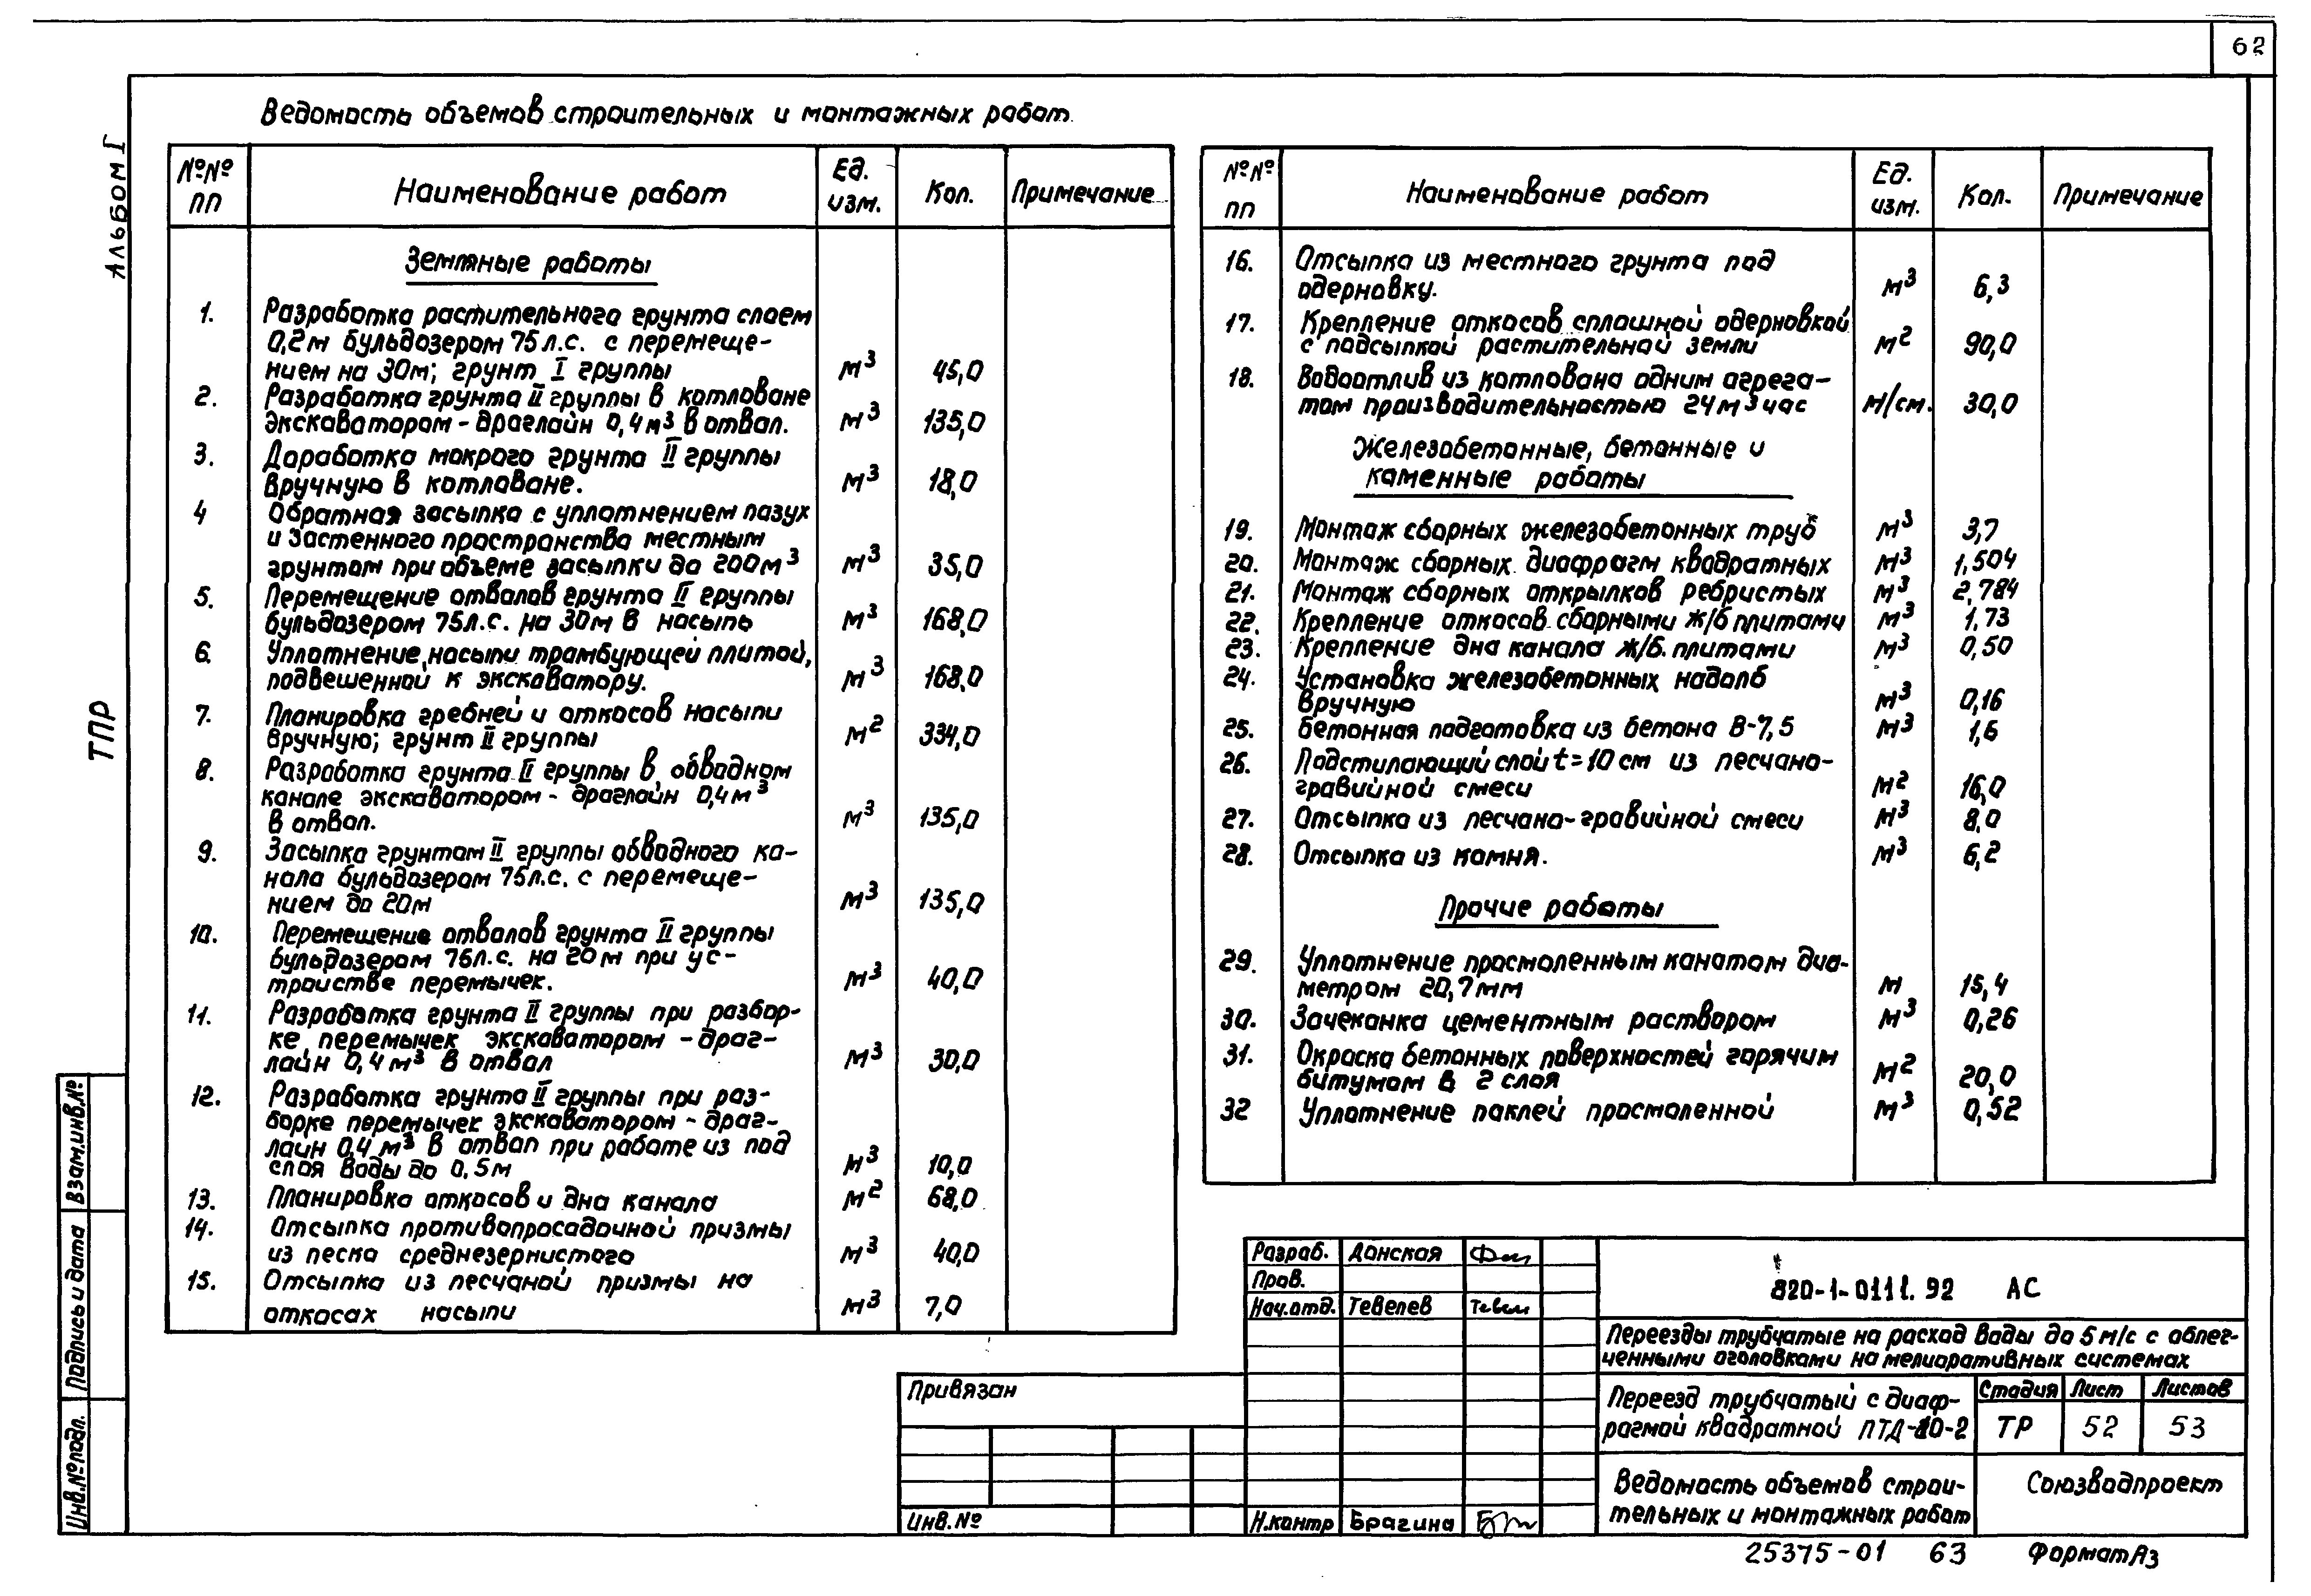 62
Ведомость объемов строительных и монтажных работ
Альбом I
ТПР
№№ пп
Наименование работ
Ед. изм.
Кол.
Примечание
Земляные работы
1. Разработка растительного грунта слоем
0,2м бульдозером 75л.с. с перемеще-
нием на 30м; грунт I группы м³ 45,0
2. Разработка грунта II группы в котловане
экскаватором-драглайн 0,4м³ в отвал. м³ 135,0
3. Доработка мокрого грунта II группы
вручную в котловане. м³ 18,0
4 Обратная засыпка с уплотнением пазух
и застенного пространства местным
грунтом при объеме засыпки до 200м³ м³ 35,0
5. Перемещение отвалов грунта II группы
бульдозером 75л.с. на 30м в насыпь м³ 168,0
6. Уплотнение насыпи трамбующей плитой,
подвешенной к экскаватору. м³ 168,0
7. Планировка гребней и откосов насыпи
вручную; грунт II группы м² 334,0
8. Разработка грунта II группы в обводном
канале экскаватором-драглайн 0,4м³
в отвал. м³ 135,0
9. Засыпка грунтом II группы обводного ка-
нала бульдозером 75л.с. с перемеще-
нием до 20м м³ 135,0
10. Перемещение отвалов грунта II группы
бульдозером 76л.с. на 20м при ус-
тройстве перемычек. м³ 40,0
11. Разработка грунта II группы при разбор-
ке перемычек экскаватором-драг-
лайн 0,4м³ в отвал м³ 30,0
12. Разработка грунта II группы при раз-
борке перемычек экскаватором-драг-
лайн 0,4м³ в отвал при работе из под
слоя воды до 0,5м м³ 10,0
13. Планировка откосов и дна канала м² 68,0
14. Отсыпка противопросадочной призмы
из песка среднезернистого м³ 40,0
15. Отсыпка из песчаной призмы на
откосах насыпи м³ 7,0
№№ пп
Наименование работ
Ед. изм.
Кол.
Примечание
16. Отсыпка из местного грунта под
одерновку. м³ 6,3
17. Крепление откосов сплошной одерновкой
с подсыпкой растительной земли м² 90,0
18. Водоотлив из котлована одним агрега-
том производительностью 24м³час м/см. 30,0
Железобетонные, бетонные и
каменные работы
19. Монтаж сборных железобетонных труб м³ 3,7
20. Монтаж сборных диафрагм квадратных м³ 1,504
21. Монтаж сборных открылков ребристых м³ 2,784
22. Крепление откосов сборными ж/б плитами м³ 1,73
23. Крепление дна канала ж/б. плитами м³ 0,50
24. Установка железобетонных надолб
вручную м³ 0,16
25. Бетонная подготовка из бетона В-7,5 м³ 1,6
26. Подстилающий слой t=10см из песчано-
гравийной смеси м² 16,0
27. Отсыпка из песчано-гравийной смеси м³ 8,0
28. Отсыпка из камня. м³ 6,2
Прочие работы
29. Уплотнение просмоленным канатом диа-
метром 20,7мм м 15,4
30. Зачеканка цементным раствором м³ 0,26
31. Окраска бетонных поверхностей горячим
битумом в 2 слоя м² 20,0
32 Уплотнение паклей просмоленной м³ 0,52
Взам.инв.№
Подпись и дата
Инв.№подл.
Привязан
Инв.№
Разраб. Донская
Пров.
Нач.отд. Тевелев
Н.контр Брагина
820-1-0111.92 АС
Переезды трубчатые на расход воды до 5м/с с облег-
ченными оголовками на мелиоративных системах
Переезд трубчатый с диаф-
рагмой квадратной ПТД-10-2
Стадия Лист Листов
ТР 52 53
Ведомость объемов строи-
тельных и монтажных работ
Союзводпроект
25375-01 63 Формат А3